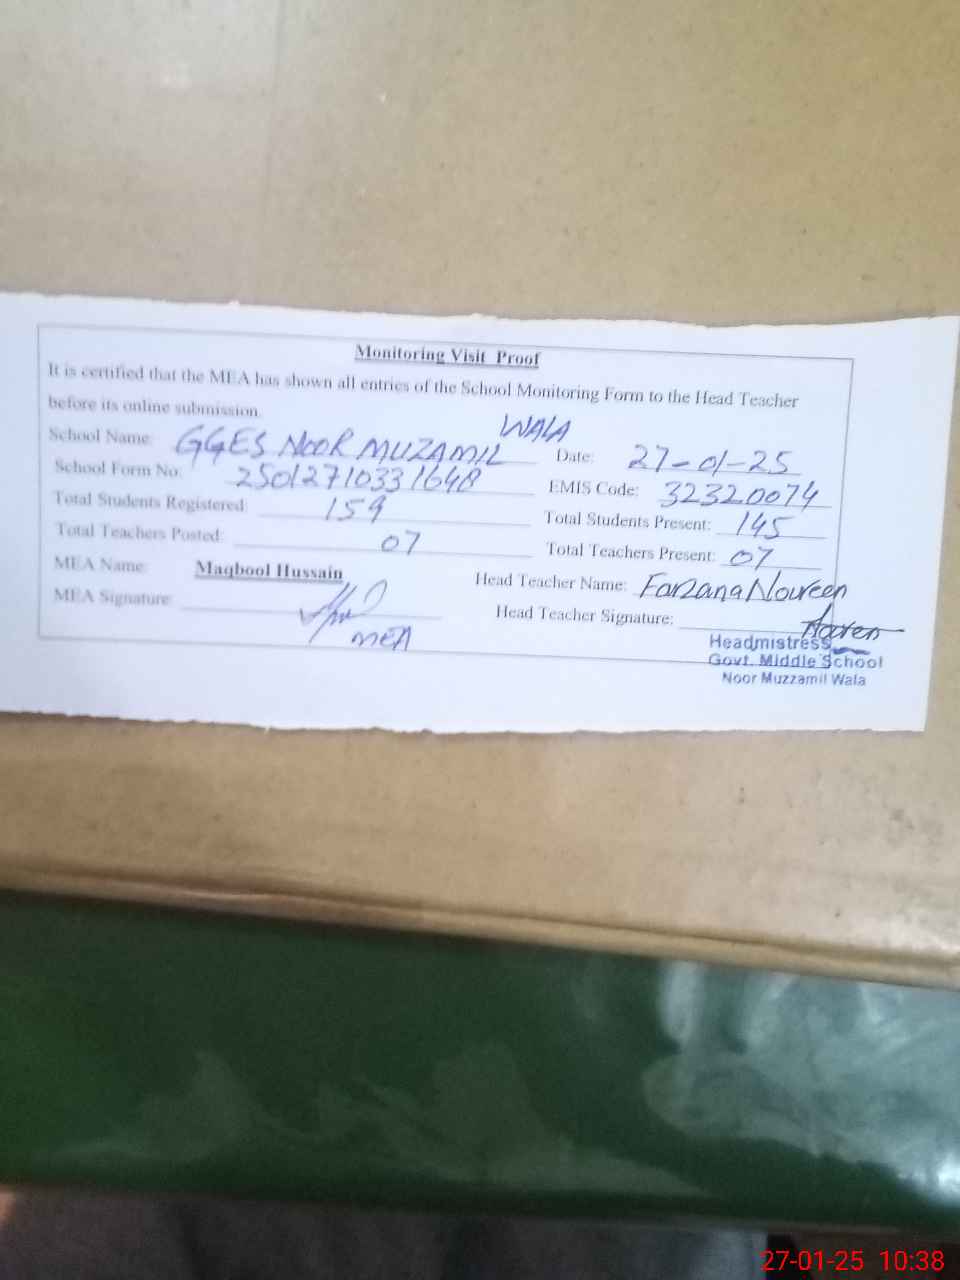 Monitoring Visit Proof
It is certified that the MEA has shown all entries of the School Monitoring Form to the Head Teacher
before its online submission.
School Name: GGES NOOR MUZAMIL WALA Date: 27-01-25
School Form No: 2501271033 1648 EMIS Code: 32320074
Total Students Registered: 159 Total Students Present: 145
Total Teachers Posted: 07 Total Teachers Present: 07
MEA Name: Maqbool Hussain Head Teacher Name: Farzana Noureen
MEA Signature: Head Teacher Signature: Noreen
MEA
Headmistress
Govt. Middle School
Noor Muzzamil Wala
27-01-25 10:38